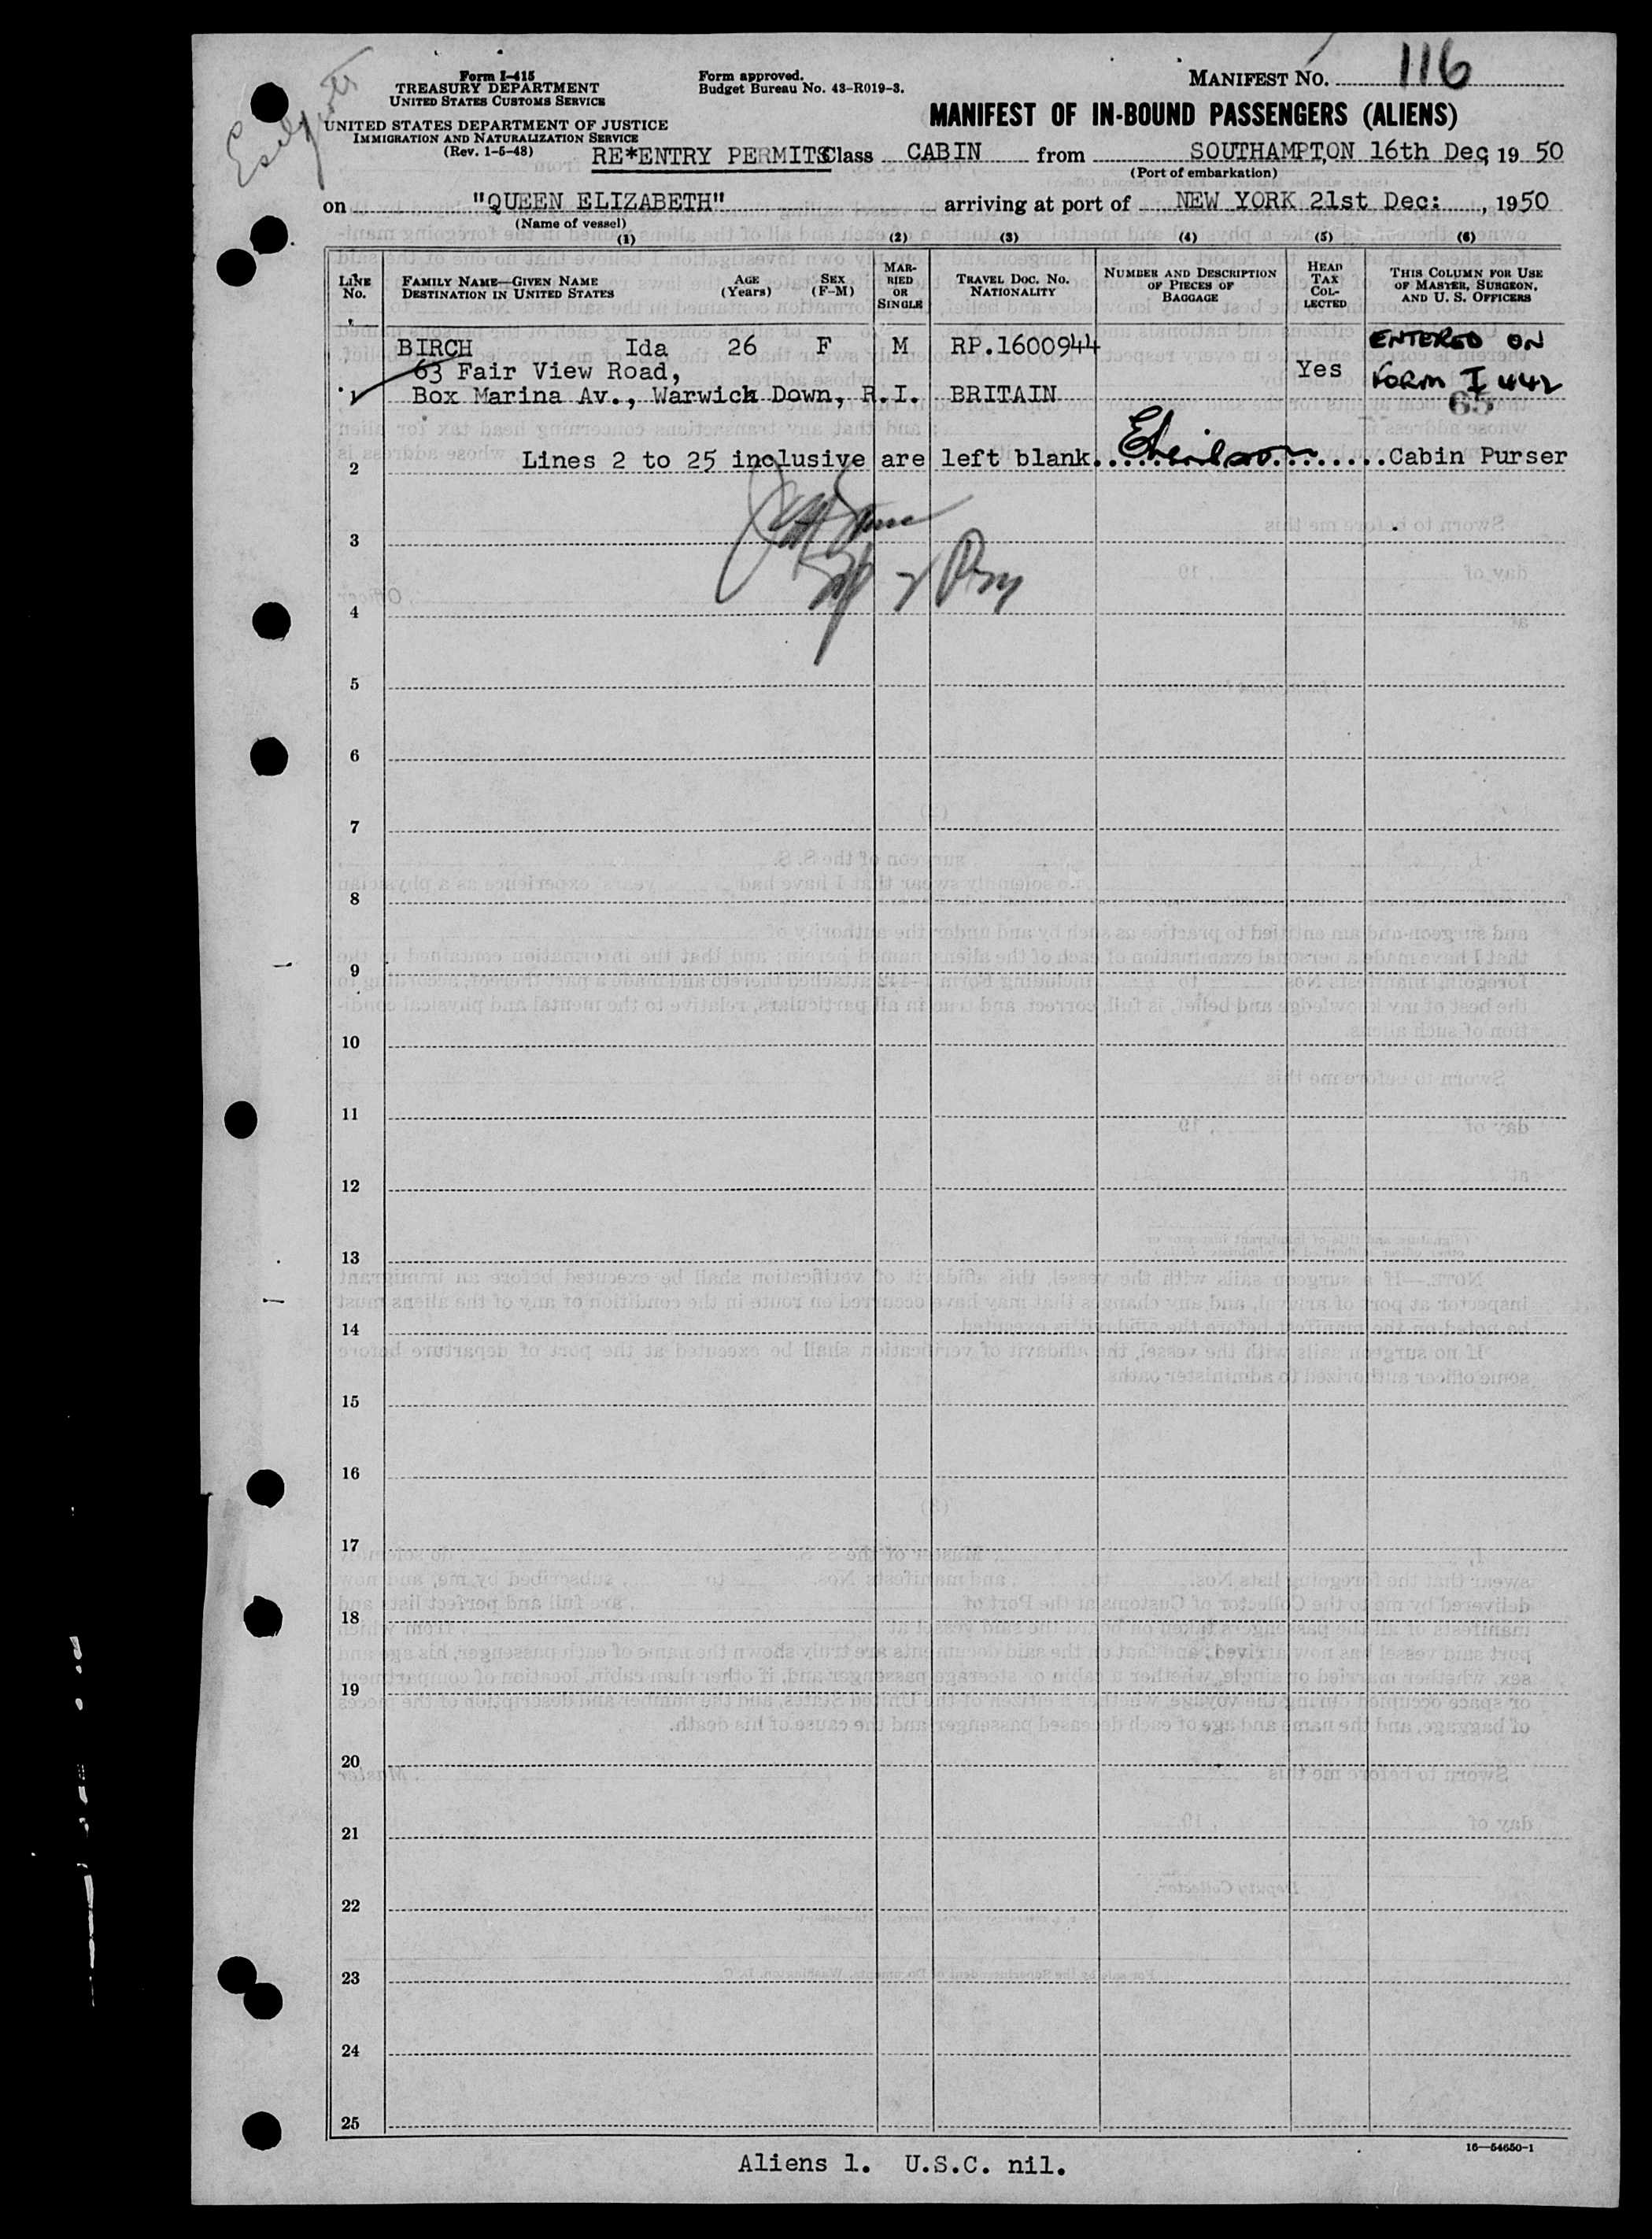 Form I-415
TREASURY DEPARTMENT
UNITED STATES CUSTOMS SERVICE
UNITED STATES DEPARTMENT OF JUSTICE
IMMIGRATION AND NATURALIZATION SERVICE
(Rev. 1-5-48)
Form approved.
Budget Bureau No. 43-R019-3.
MANIFEST NO. 116
MANIFEST OF IN-BOUND PASSENGERS (ALIENS)
RE*ENTRY PERMITS Class CABIN from SOUTHAMPTON 16th Dec, 19 50
(Port of embarkation)
on "QUEEN ELIZABETH" arriving at port of NEW YORK 21st Dec:, 1950
(Name of vessel)
(1) (2) (3) (4) (5) (6)
LINE NO.
FAMILY NAME—GIVEN NAME
DESTINATION IN UNITED STATES
AGE (Years)
SEX (F-M)
MARRIED OR SINGLE
TRAVEL DOC. NO. NATIONALITY
NUMBER AND DESCRIPTION OF PIECES OF BAGGAGE
HEAD TAX COLLECTED
THIS COLUMN FOR USE OF MASTER, SURGEON, AND U. S. OFFICERS
BIRCH Ida 26 F M RP.1600944 ENTERED ON
63 Fair View Road, Yes FORM I 442
1 Box Marina Av., Warwick Down, R.I. BRITAIN 65
2 Lines 2 to 25 inclusive are left blank. Cabin Purser
3
4
5
6
7
8
9
10
11
12
13
14
15
16
17
18
19
20
21
22
23
24
25
16—54650-1
Aliens 1. U.S.C. nil.